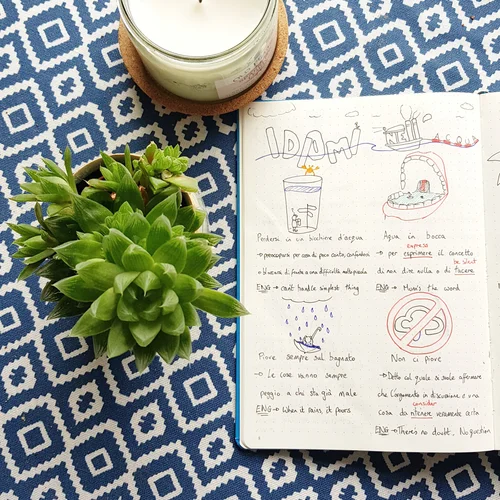 IDIOMI NELL'ACQUA
Perdersi in un bicchiere d'acqua
→ preoccuparsi per cose di poco conto, confondersi
di fronte a una difficoltà nelle piccole
ENG → can't handle simplest thing
Agua in bocca
express
→ per esprimere il concetto
be silent
di non dire nulla o di tacere
ENG → Mum's the word
Piove sempre sul bagnato
→ Le cose vanno sempre
peggio a chi sta già male
ENG → When it rains, it pours
Non ci piove
→ Detto al quale si suole affermare
che l'argomento in discussione è una
consider
cosa da ritenere veramente certa
ENG → There's no doubt, No question